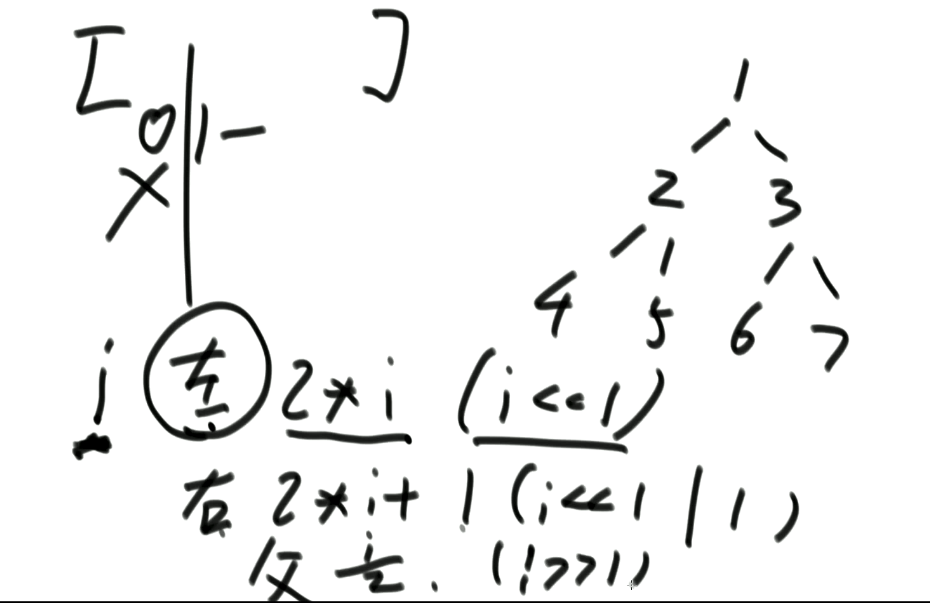 [ ]
0 | 1 -
X
1
2 3
4 5 6 7
i 左 2*i (i<<1)
右 2*i+1 (i<<1 | 1)
i/2 . (i>>1)